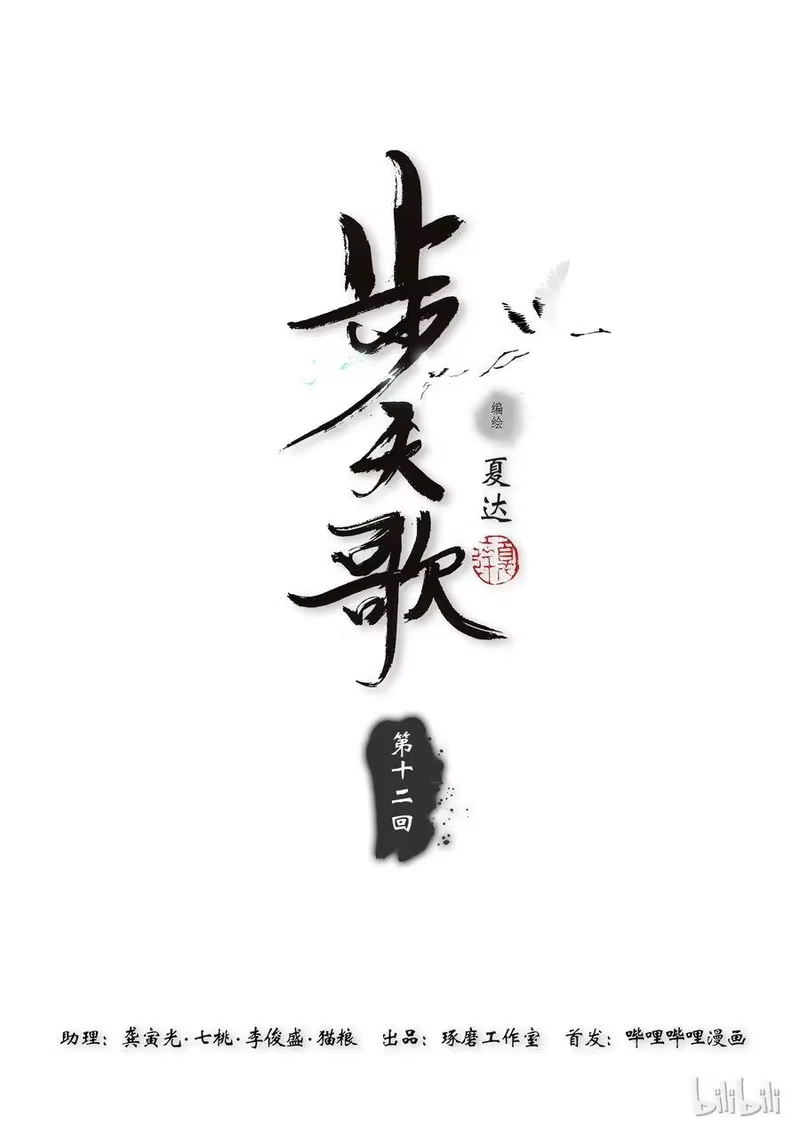 步天歌
编绘
夏达
夏达
第十二回
助理：龚寅光·七桃·李俊盛·猫粮 出品：琢磨工作室 首发：哔哩哔哩漫画
bilibili